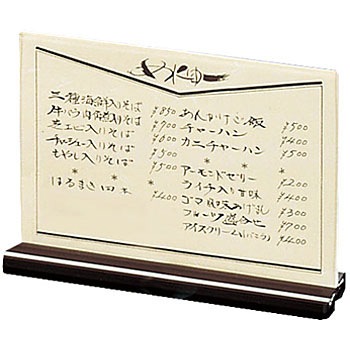 三種海鮮入りそば ¥850
牛バラ肉煮入りそば ¥700
芝エビ入りそば ¥600
チャーシュー入りそば ¥500
もやし入りそば ¥500
* * *
はるまき四本 ¥400
あんかけご飯 ¥500
チャーハン ¥400
カニチャーハン ¥500
* * *
アーモンドゼリー ¥200
ライチ入り甘味 ¥400
ゴマ ¥300
フルーツ盛合せ ¥700
アイスクリーム ¥400